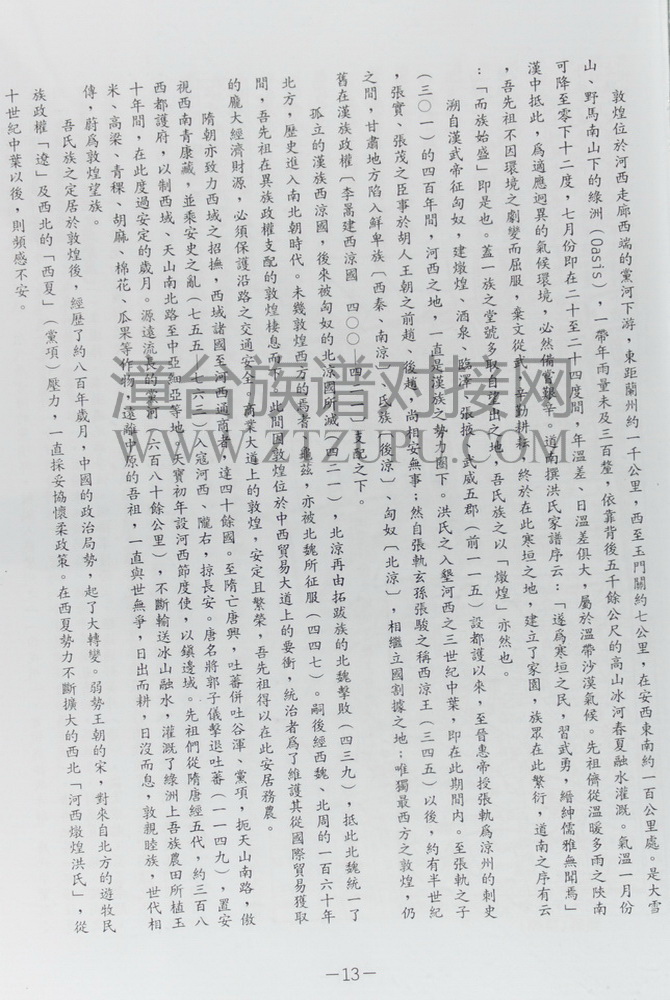 敦煌位於河西走廊西端的黨河下游，東距蘭州約一千公里，西至玉門關約七公里，在安西東南約一百公里處。是大雪
山、野馬南山下的綠洲（Oasis），一帶年雨量未及三百釐，依靠背後五千餘公尺的高山冰河春夏融水灌溉。氣溫一月份
可降至零下十二度，七月份即在二十至二十四度間，年溫差、日溫差俱大，屬於溫帶沙漠氣候。先祖儕從溫暖多雨之陝南
漢中抵此，為適應迥異的氣候環境，必然備嘗艱辛。道南撰洪氏家譜序云：「遂爲寒垣之民，習武勇，縉紳儒雅無聞焉」
，吾先祖不因環境之劇變而屈服，棄文從武，辛勤耕耘，終於在此寒垣之地，建立了家園，族眾在此繁衍，道南之序有云
：「而族始盛」即是也。蓋一族之堂號多取自望出之地，吾氏族之以「燉煌」亦然也。
溯自漢武帝征匈奴，建燉煌、酒泉、臨澤、張掖、武威五郡（前一一五）設都護以來，至晉惠帝授張軌爲涼州的刺史
（三〇一）的四百年間，河西之地，一直是漢族之勢力圈下。洪氏之入墾河西之三世紀中葉，即在此期間內。至張軌之子
，張寔、張茂之臣事於胡人王朝之前趙、後趙，尚相安無事；然自張軌玄孫張駿之稱西涼王（三四五）以後，約有半世紀
之間，甘肅地方陷入鮮卑族〔西秦、南涼〕、氐族〔後涼〕、匈奴〔北涼〕，相繼立國割據之地；唯獨最西方之敦煌，仍
舊在漢族政權〔李暠建西涼國　四〇〇―四二一〕支配之下。
孤立的漢族西涼國，後來被匈奴的北涼國所滅（四二一），北涼再由拓跋族的北魏擊敗（四三九），抵此北魏統一了
北方，歷史進入南北朝時代。未幾敦煌西方的焉耆、龜茲，亦被北魏所征服（四四七）。嗣後經西魏、北周的一百六十年
間，吾先祖在異族政權支配的敦煌棲息而下。此間因敦煌位於中西貿易大道上的要衝，統治者爲了維護其從國際貿易獲取
的龐大經濟財源，必須保護沿路之交通安全，商業大道上的敦煌，安定且繁榮，吾先祖得以在此安居務農。
隋朝亦致力西域之招撫，西域諸國至河西通商者，達四十餘國。至隋亡唐興，吐蕃併吐谷渾、黨項，扼天山南路，傲
視西南青康藏，並乘安史之亂（七五五―七六三）入寇河西、隴右，掠長安。唐名將郭子儀擊退吐蕃（一一四九），置安
西都護府，以制西域、天山南北路至中亞細亞等地。天寶初年設河西節度使，以鎮邊域。先祖們從隋唐經五代，約三百八
十年間，在此度過安定的歲月。源遠流長的黨河（六百八十餘公里），不斷輸送冰山融水，灌溉了綠洲上吾族農田所植玉
米、高梁、青稞、胡麻、棉花、瓜果等作物。遠離中原的吾祖，一直與世無爭，日出而耕，日沒而息，敦親睦族，世代相
傳，蔚爲敦煌望族。
吾氏族之定居於敦煌後，經歷了約八百年歲月，中國的政治局勢，起了大轉變。弱勢王朝的宋，對來自北方的遊牧民
族政權「遼」及西北的「西夏」（黨項）壓力，一直採妥協懷柔政策。在西夏勢力不斷擴大的西北「河西燉煌洪氏」，從
十世紀中葉以後，則頻感不安。
漳台族谱对接网
WWW.ZTZUPU.COM
―13―